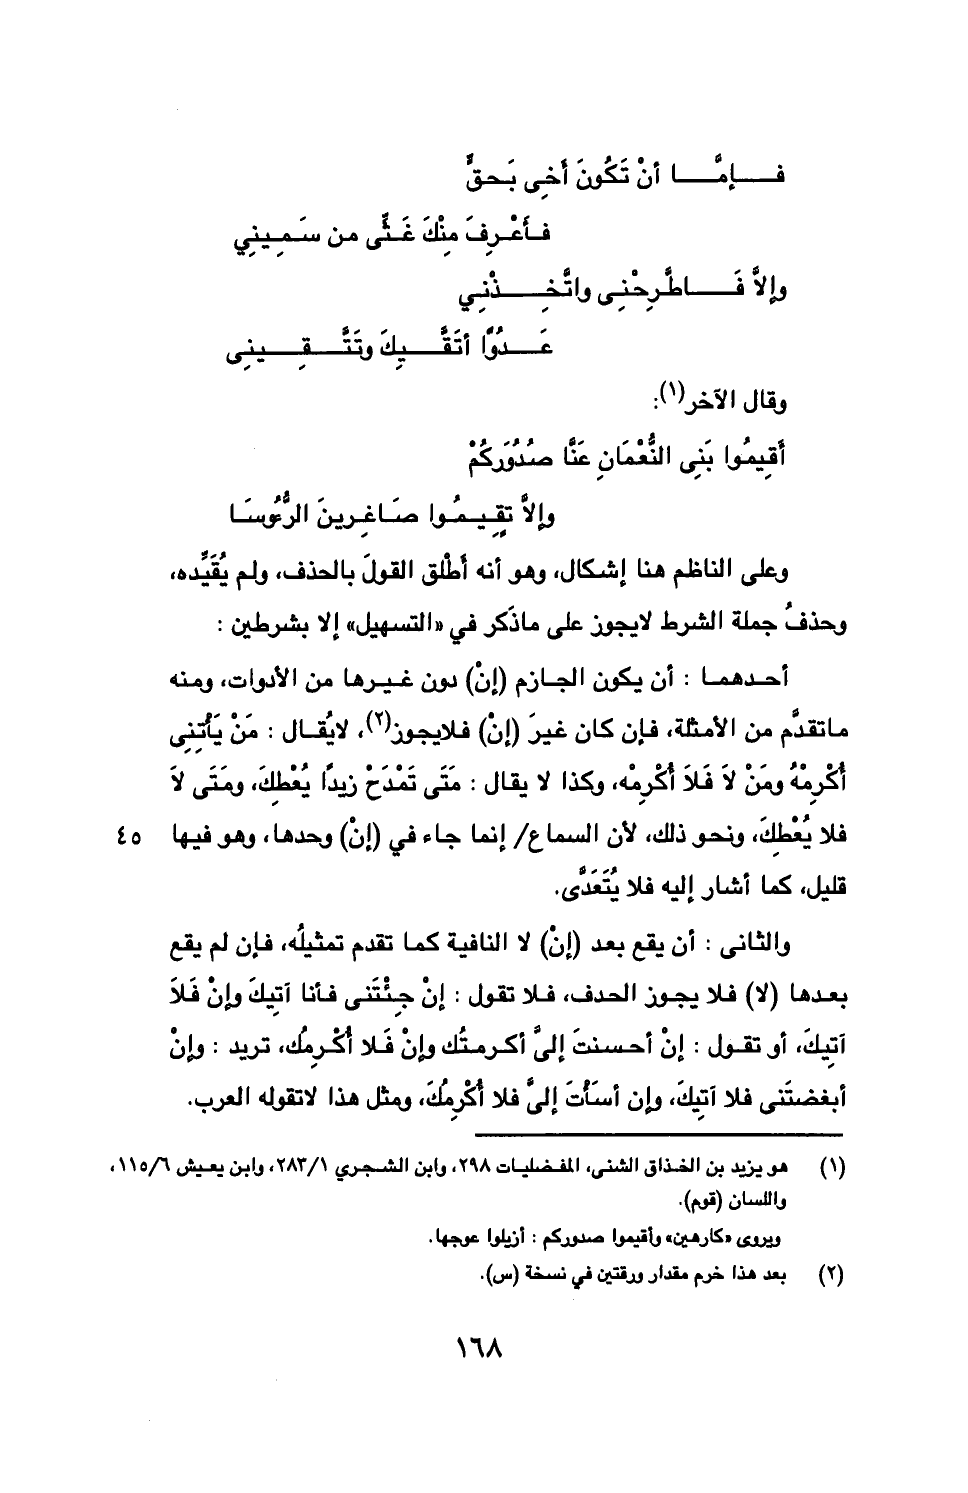 فـــإمَّـــا أنْ تَكُونَ أخِى بَحقٍّ
فـأَعْـرِفَ مِنْكَ غَـثِّى من سَـمِـينِي
وإلاَّ فَـــاطَّرِحْنِى واتَّخِـــذْنِي
عَـــدُوًّا أتَقَّـــيِكَ وتَتَّـــقِـــينِى
وقال الآخر(١):
أَقِيمُوا بَنِى النُّعْمَانِ عَنَّا صُدُوَركُمْ
وإلاَّ تقِـيـمُـوا صَـاغِـرينَ الرُّءُوسَـا
وعلى الناظم هنا إشكال، وهو أنه أَطْلق القولَ بالحذف، ولم يُقَيِّده،
وحذفُ جملة الشرط لايجوز على ماذَكر في «التسهيل» إلا بشرطين :
أحـدهمـا : أن يكون الجـازم (إنْ) دون غـيـرها من الأدوات، ومنه
ماتقدَّم من الأمثلة، فإن كان غيرَ (إنْ) فلايجوز(٢)، لايُقـال : مَنْ يَأْتِنِى
أُكْرِمْهُ ومَنْ لاَ فَلاَ أُكْرِمْه، وكذا لا يقال : مَتَى تَمْدَحْ زيدًا يُعْطِكَ، ومَتَى لاَ
فلا يُعْطِكَ، ونحو ذلك، لأن السماع/ إنما جاء في (إنْ) وحدها، وهو فيها ٤٥
قليل، كما أشار إليه فلا يُتَعَدَّى.
والثانى : أن يقع بعد (إنْ) لا النافية كما تقدم تمثيلُه، فإن لم يقع
بعدها (لا) فلا يجوز الحدف، فلا تقول : إنْ جِئْتَنى فأنا آتيكَ وإنْ فَلاَ
آتيكَ، أو تقـول : إنْ أحسنتَ إلىَّ أكرمتُك وإنْ فَلا أُكْرِمُك، تريد : وإنْ
أبغضتَنى فلا آتيكَ، وإن أسَأْتَ إلىَّ فلا أُكْرِمُكَ، ومثل هذا لاتقوله العرب.
(١) هو يزيد بن الخذاق الشنى، المفضليات ٢٩٨، وابن الشجري ٢٨٣/١، وابن يعيش ١١٥/٦،
واللسان (قوم).
ويروى «كارهين» وأقيموا صدوركم : أزيلوا عوجها.
(٢) بعد هذا خرم مقدار ورقتين في نسخة (س).
١٦٨